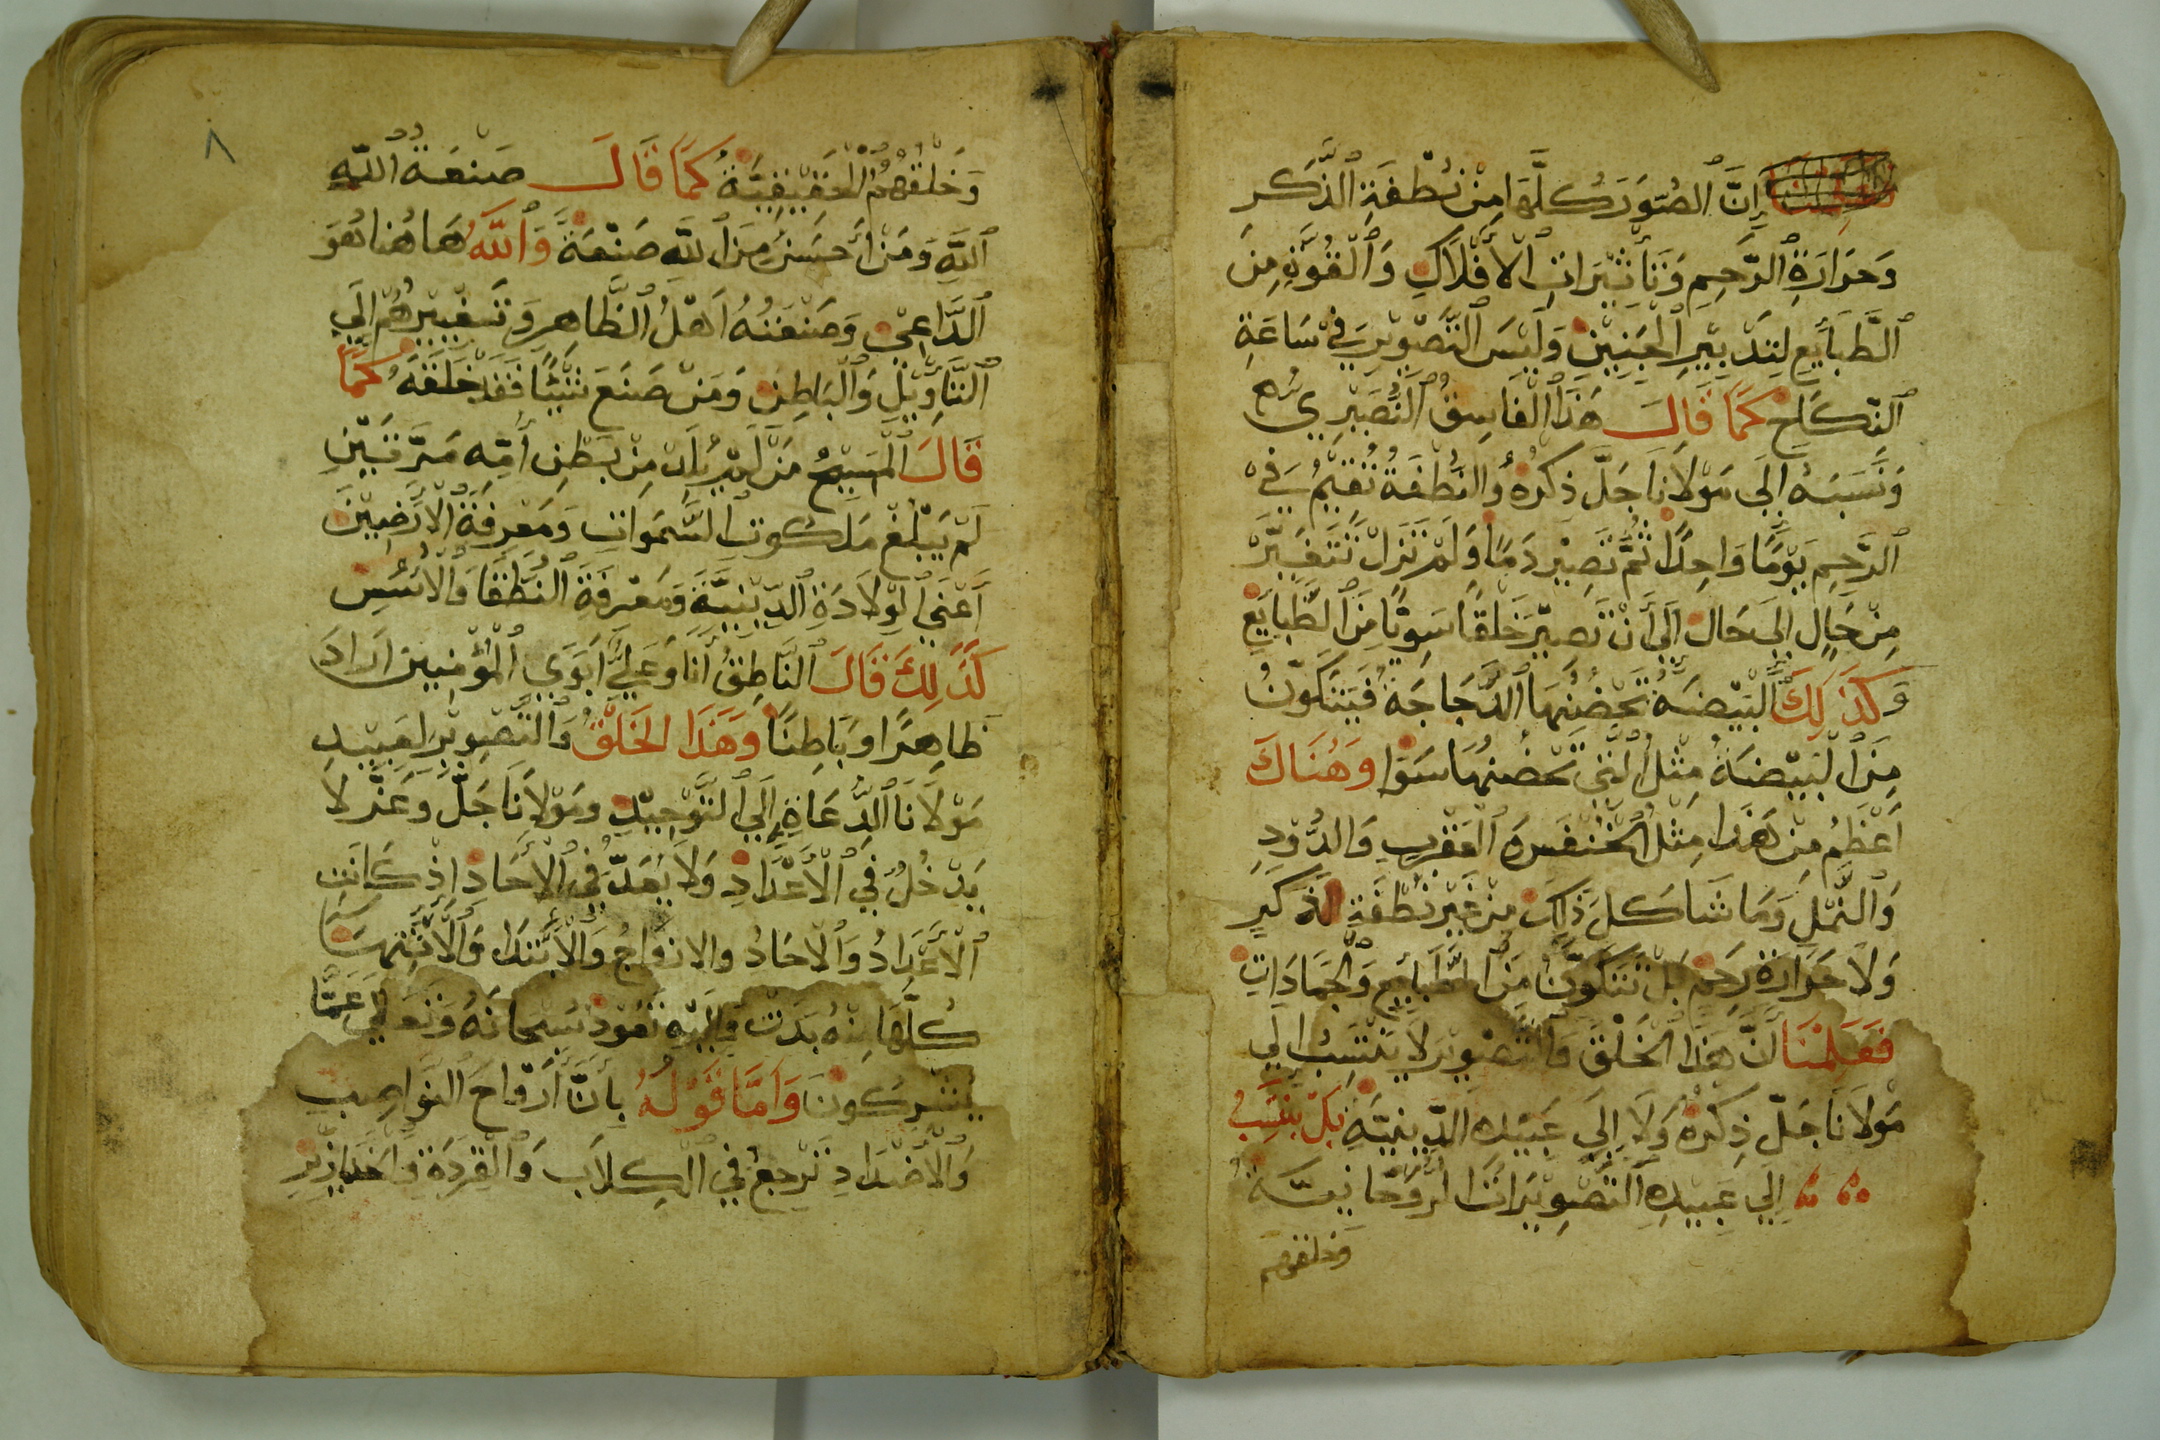 إِنَّ ٱلصُّوَرَ كُلَّهَا مِنْ نُطْفَةِ ٱلذَّكَرِ
وَحَرَارَةِ ٱلرَّحِمِ وَتَأْثِيرَاتِ ٱلْأَفْلَاكِ وَٱلْقُوَّةِ مِنَ
ٱلطَّبَايِعِ لِتَدْبِيْرِ ٱلْجَنِيْنِ وَلَيْسَ ٱلتَّصْوِيْرَ فِيْ سَاعَةِ
ٱلنِّكَاحِ كَمَا قَالَ هَذَا ٱلْفَاسِقُ ٱلنُّصَيْرِيُّ
وَنَسَبَهُ إِلَى مَوْلَانَا جَلَّ ذِكْرُهُ وَٱلنُّطْفَةُ تُقِيْمُ فِيْ
ٱلرَّحِمِ يَوْمًا وَاحِدًا ثُمَّ تَصِيْرُ دَمًا وَلَمْ تَزَلْ تَتَغَيَّرْ
مِنْ حَالٍ إِلَى حَالٍ إِلَى أَنْ تَصِيْرَ خَلْقًا سَوِيًّا مِنَ ٱلطَّبَايِعِ
وَكَذَلِكَ ٱلْبَيْضَةُ تَحْضُنُهَا ٱلدَّجَاجَةُ فَيَتَكَوَّنُ
مِنَ ٱلْبَيْضَةِ مِثْلُ ٱلَّتِي تَحْضُنُهَا سَوَا وَهُنَاكَ
أَعْظَمُ مِنْ هَذَا مِثْلُ ٱلْخُنْفَسَةِ ٱلْعَقْرَبِ وَالدُّوْدِ
وَٱلنَّمْلِ وَمَا شَاكَلَ ذَلِكَ مِنْ غَيْرِ نُطْفَةِ ذَكَرٍ
وَلَا حَرَارَةِ رَحِمٍ بَلْ تَتَكَوَّنُ مِنَ ٱلطَّبَايِعِ وَٱلْجَمَادَاتِ
فَعَلِمْنَا أَنَّ هَذَا ٱلْخَلْقَ وَٱلتَّصْوِيْرَ لَا يَنْتَسِبُ إِلَى
مَوْلَانَا جَلَّ ذِكْرُهُ وَلَا إِلَى عَبِيْدِهِ ٱلدِّيْنِيَّةِ بَلْ يَنْتَسِبْ
إِلَى عَبِيْدِهِ ٱلتَّصْوِيْرَاتُ ٱلرُّوْحَانِيَّةُ
وخلقهم
٨
وَخَلْقُهُمُ ٱلْحَقِيْقِيَّةُ كَمَا قَالَ صَنْعَةُ ٱللَّهِ
ٱللَّهِ وَمَنْ أَحْسَنُ مِنَ ٱللَّهِ صَنْعَةً وَٱللَّهُ هَاهُنَا هُوَ
ٱلدَّاعِيْ وَصَنْعَتُهُ أَهْلُ ٱلظَّاهِرِ وَتَغْيِيْرُهُمْ إِلَى
ٱلتَّأْوِيْلِ وَٱلْبَاطِنِ وَمَنْ صَنَعَ شَيْئًا فَقَدْ خَلَقَهُ كَمَا
قَالَ ٱلْمَسِيْحُ مَنْ لَمْ يُلَدْ مِنْ بَطْنِ أُمِّهِ مَرَّتَيْنِ
لَمْ يَبْلُغْ مَلَكُوتَ ٱلسَّمَوَاتِ وَمَعْرِفَةَ ٱلْأَرَضِيْنَ
أَعْنِي ٱلْوِلَادَةَ ٱلدِّيْنِيَّةَ وَمَعْرِفَةَ ٱلنُّطَقَا وَٱلْأُسُسِ
كَذَلِكَ قَالَ ٱلنَّاطِقُ أَنَا وَعَلِيٌّ أَبَوَي ٱلْمُؤْمِنِيْنَ أَرَادَ
ظَاهِرًا وَبَاطِنًا وَهَذَا الْخَلْقُ وَٱلتَّصْوِيْرُ لِعَبِيْدِ
مَوْلَانَا ٱلدُّعَاةِ إِلَى ٱلتَّوْحِيْدِ وَمَوْلَانَا جَلَّ وَعَزَّ لَا
يَدْخُلُ فِي ٱلْأَعْدَادِ وَلَا يُعَدُّ فِي ٱلْآحَادِ إِذْ كَانَت
ٱلْأَعْدَادُ وَٱلْآحَادُ وَالْازْوَاجُ وَٱلْابْتِدَا وَٱلْانْتِهَا
كُلُّهَا مِنْهُ بَدَتْ وَإِلَيْهِ تَعُوْدُ سُبْحَانَهُ وَتَعَالَى عَمَّا
يُشْرِكُوْنَ وَأَمَّا قَوْلُهُ بِأَنَّ أَرْوَاحَ ٱلنَّوَاصِبِ
وَٱلْأَضْدَادِ تَرْجِعُ فِي ٱلْكِلَابِ وَٱلْقِرَدَةِ وَٱلْخَنَازِيْرِ